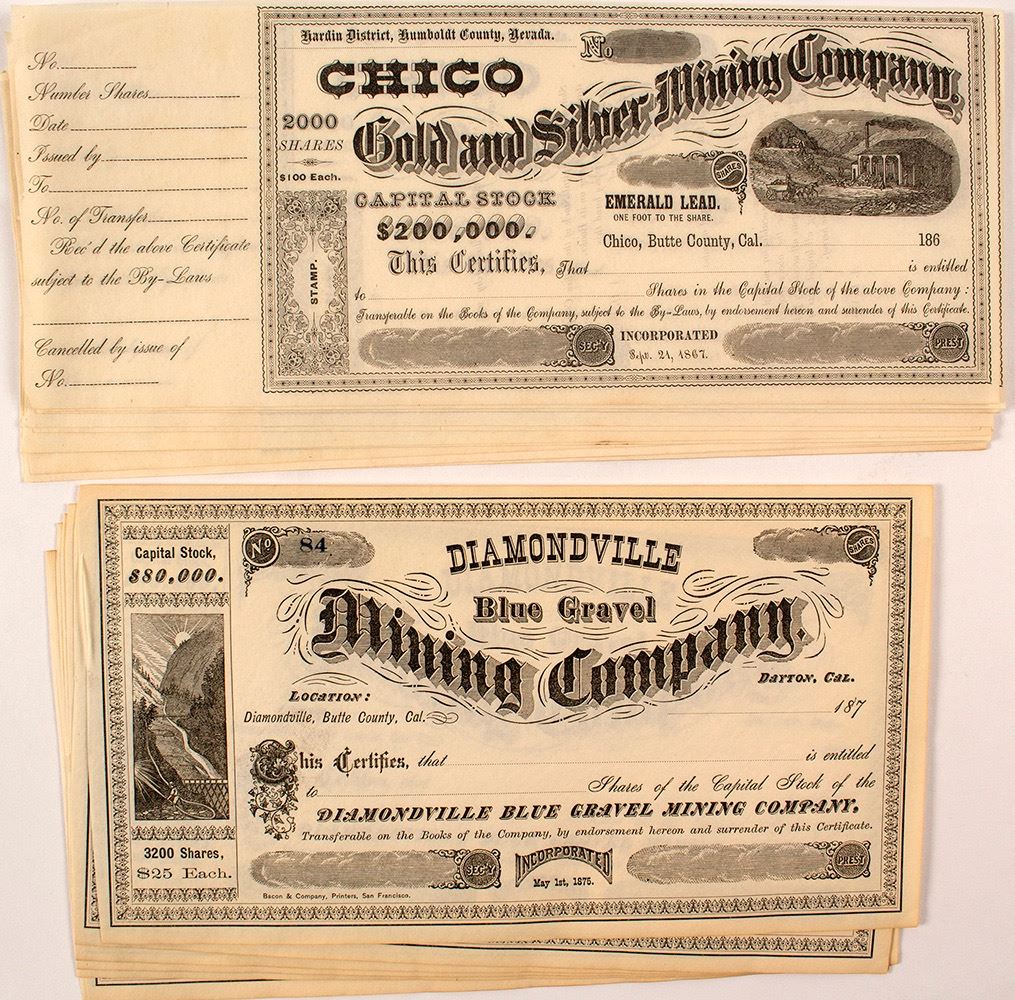 No.
Number Shares
Date
Issued by
To
No. of Transfer
Rec'd the above Certificate
subject to the By-Laws
Cancelled by issue of
No.
Hardin District, Humboldt County, Nevada.
No
CHICO
Gold and Silver Mining Company.
2000
SHARES
$100 Each.
STAMP.
CAPITAL STOCK
$200,000.
SHARES
EMERALD LEAD.
ONE FOOT TO THE SHARE.
Chico, Butte County, Cal. 186
This Certifies, That is entitled
to Shares in the Capital Stock of the above Company:
Transferable on the Books of the Company, subject to the By-Laws, by endorsement hereon and surrender of this Certificate.
SEC'Y
INCORPORATED
Sept. 21, 1867.
PREST
Capital Stock,
$80,000.
3200 Shares,
$25 Each.
No 84
SHARES
DIAMONDVILLE
Blue Gravel
Mining Company.
LOCATION:
Diamondville, Butte County, Cal.
DAYTON, CAL.
187
This Certifies, that is entitled
to Shares of the Capital Stock of the
DIAMONDVILLE BLUE GRAVEL MINING COMPANY.
Transferable on the Books of the Company, by endorsement hereon and surrender of this Certificate.
SEC'Y
INCORPORATED
May 1st, 1875.
PREST
Bacon & Company, Printers, San Francisco.